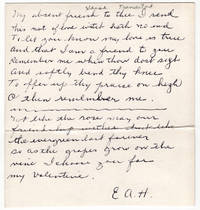 My absent friend to thee I send
This not of love untill hath no end
To let you know my love is true
And that I am a friend to you
Remember me when thou dost sigh
And softly bend thy knee
To offer up thy praise on high
O then remember me.
Not like the rose may our
friendship wither but like
the evergreen last forever
So as the grapes grow on the
vine I choose you for
my Valentine.
E. A. H.